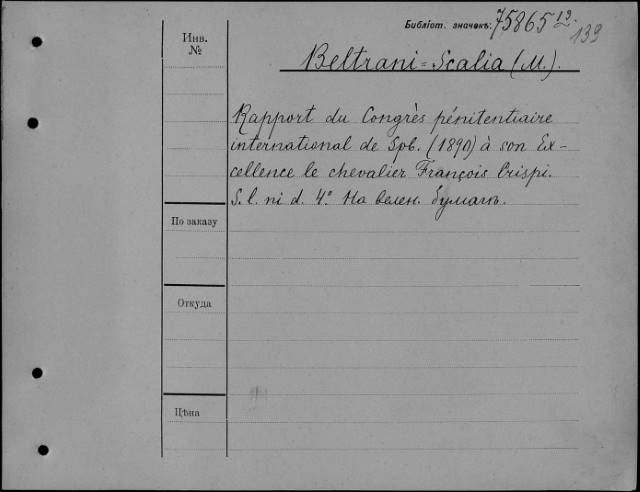 Библіот. значекъ: 75865 13.
139
Инв.
№
Beltrani-Scalia (M.).
Rapport du Congrès pénitentiaire
international de Spb. (1890) à son Ex-
cellence le chevalier François Crispi.
S. l. ni d. 4° На велен. бумагѣ.
По заказу
Откуда
Цѣна